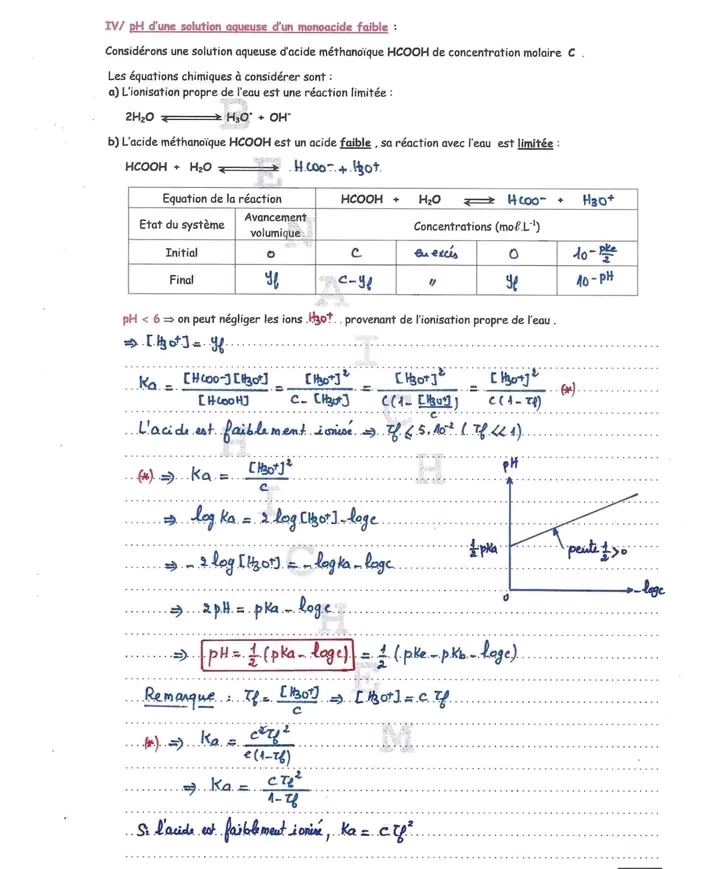 IV/ pH d'une solution aqueuse d'un monoacide faible :
Considérons une solution aqueuse d'acide méthanoïque HCOOH de concentration molaire C .
Les équations chimiques à considérer sont :
a) L'ionisation propre de l'eau est une réaction limitée :
2H₂O ⇌ H₃O⁺ + OH⁻
b) L'acide méthanoïque HCOOH est un acide faible , sa réaction avec l'eau est limitée :
HCOOH + H₂O ⇌ HCOO⁻ + H3O⁺
Equation de la réaction HCOOH + H₂O ⇌ HCOO⁻ + H3O⁺
Etat du système Avancement volumique Concentrations (moℓ.L⁻¹)
Initial 0 C en excés 0 10^(-pke/2)
Final yf C-yf " yf 10^-pH
pH < 6 ⇒ on peut négliger les ions H3O⁺ provenant de l'ionisation propre de l'eau .
⇒ [H3O⁺] = yf
Ka = [HCOO⁻][H3O⁺]/[HCOOH] = [H3O⁺]²/(C - [H3O⁺]) = [H3O⁺]²/(C(1 - [H3O⁺]/C)) = [H3O⁺]²/(C(1 - τf)) (*)
L'acide est faiblement ionisé ⇒ τf ≤ 5.10⁻² (τf << 1)
(*) ⇒ Ka = [H3O⁺]²/C
⇒ log Ka = 2 log [H3O⁺] - logc
⇒ - 2 log [H3O⁺] = - log ka - logc
⇒ 2pH = pKa - logc
⇒ pH = 1/2 (pKa - logc) = 1/2 (pKe - pKb - logc)
pH
1/2 pKa
pente 1/2 >0
0
-logc
Remarque : τf = [H3O⁺]/C ⇒ [H3O⁺] = C τf
(*) ⇒ Ka = C²τf²/(C(1-τf))
⇒ Ka = C τf²/(1-τf)
Si l'acide est faiblement ionisé, Ka = C τf²
BEN AICHICH HEM